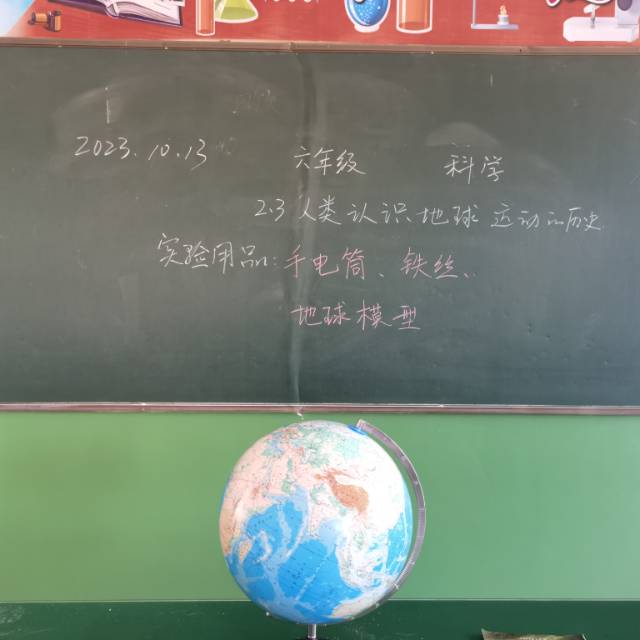 2023.10.13 六年级 科学
2.3 人类认识地球运动的历史
实验用品:手电筒、铁丝、
地球模型